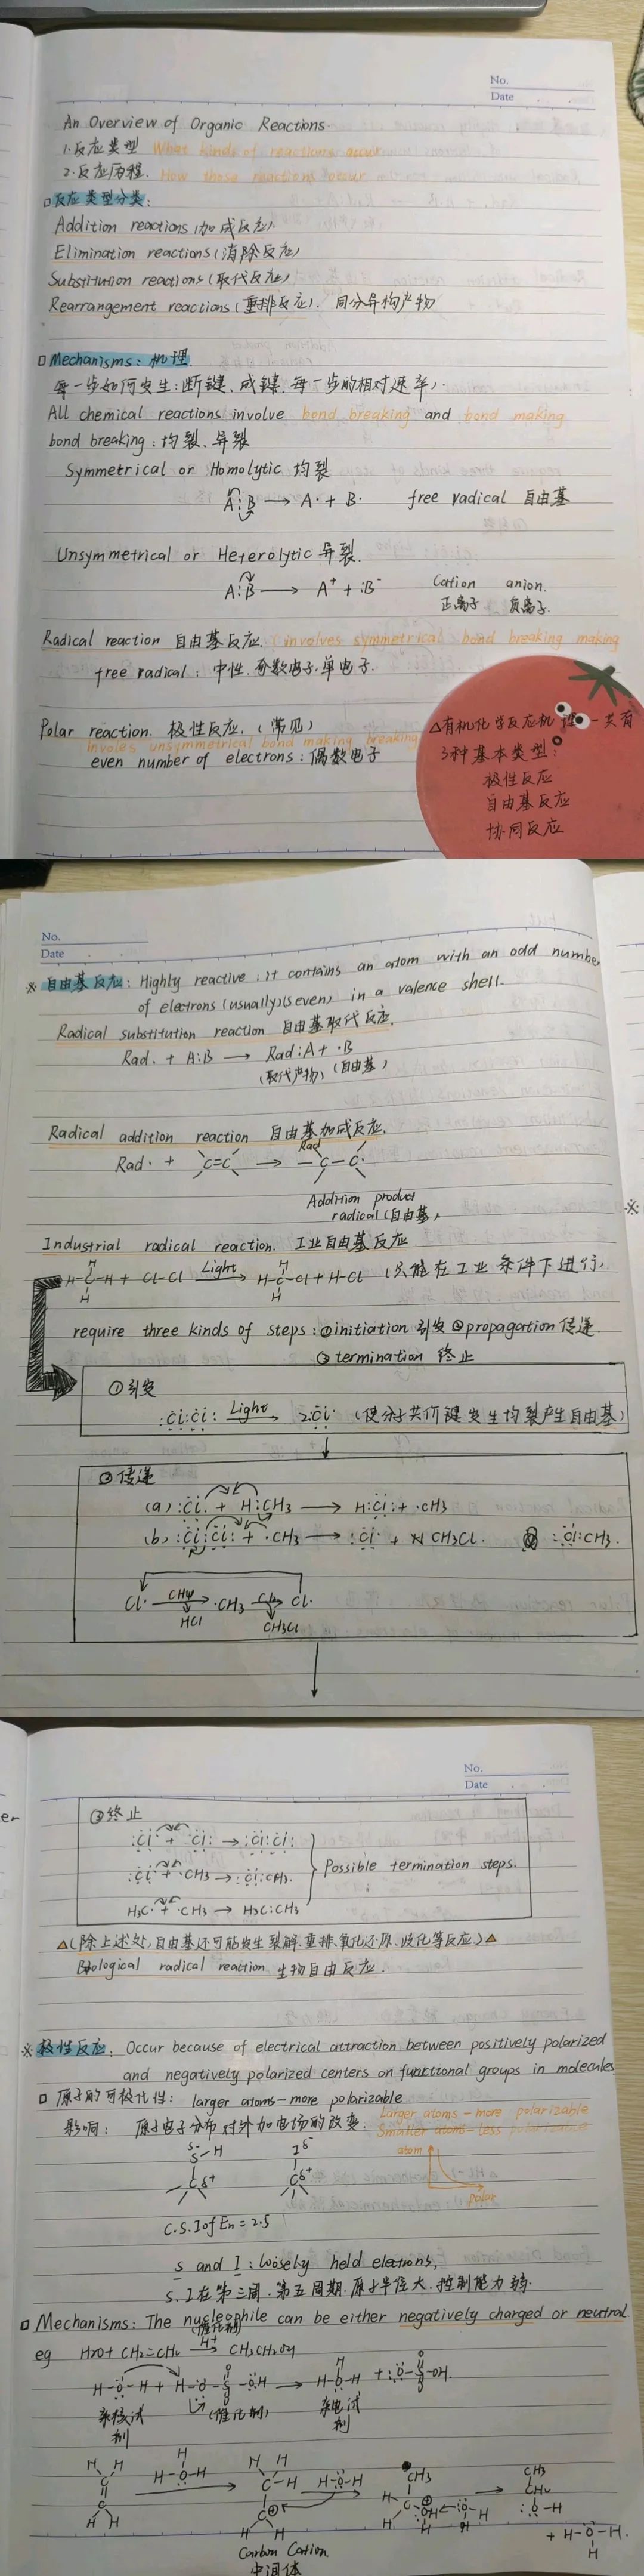 No.
Date
An Overview of Organic Reactions.
1.反应类型 What kinds of reactions occur
2.反应历程. How those reactions occur
反应类型分类:
Addition reactions (加成反应).
Elimination reactions (消除反应)
Substitution reactions (取代反应)
Rearrangement reactions (重排反应). 同分异构产物
Mechanisms: 机理.
每一步如何发生:断键、成键、每一步的相对速率).
All chemical reactions involve bond breaking and bond making
bond breaking: 均裂、异裂
Symmetrical or Homolytic 均裂
A:B → A· + B· free radical 自由基
Unsymmetrical or Heterolytic 异裂.
A:B → A⁺ + :B⁻ Cation anion.
正离子 负离子.
Radical reaction 自由基反应. (involves symmetrical bond breaking making
free radical: 中性、奇数电子、单电子.
Polar reaction. 极性反应. (常见)
Involes unsymmetrical bond making breaking
even number of electrons: 偶数电子
△有机化学反应机理一共有
3种基本类型:
极性反应
自由基反应
协同反应
No.
Date
※ 自由基反应: Highly reactive: it contains an atom with an odd number
of electrons (usually is seven) in a valence shell.
Radical substitution reaction 自由基取代反应.
Rad. + A:B → Rad:A + ·B
(取代产物) (自由基)
Radical addition reaction 自由基加成反应.
Rad· + C=C → Rad -C-C·
Addition product
radical (自由基)
Industrial radical reaction. 工业自由基反应
H
H-C-H + Cl-Cl Light → H-C-Cl + H-Cl (只能在工业条件下进行)
H H
require three kinds of steps: ①initiation 引发 ②propagation 传递.
③ termination 终止
①引发
:Cl:Cl: Light → 2:Cl· (使分子共价键发生均裂产生自由基)
②传递
(a) :Cl· + H:CH3 → H:Cl: + ·CH3
(b) :Cl:Cl: + ·CH3 → :Cl· + CH3Cl. :Cl:CH3.
Cl· CH4 → ·CH3 Cl2 → Cl·
HCl CH3Cl
No.
Date
③终止
:Cl· + ·Cl: → :Cl:Cl:
:Cl· + ·CH3 → :Cl:CH3. Possible termination steps.
H3C· + ·CH3 → H3C:CH3
△(除上述外,自由基还可能发生裂解、重排、氧化还原、歧化等反应.)△
Biological radical reaction 生物自由反应.
※ 极性反应: Occur because of electrical attraction between positively polarized
and negatively polarized centers on functional groups in molecules
原子的可极化性: larger atoms - more polarizable
影响: 原子电子分布对外加电场的改变. Larger atoms - more polarizable
Smaller atoms - less polarizable
δ⁻ S-H I δ⁻ atom
C δ⁺ C δ⁺ polar
C.S.I of En = 2.5
S and I: Loosely held electrons,
S.I在第三周.第五周期.原子半径大.控制能力弱.
Mechanisms: The nucleophile can be either negatively charged or neutral.
(催化剂)
eg H2O + CH2=CH2 H⁺ → CH3CH2OH
H-O-H + H-O-S-O-H → H-O-H + :O-S-OH.
亲核试剂 (催化剂) 亲电试剂
H H H H H
C H-O-H → C-H H-O-H → CH3 → CH3
C C⊕ H-C-OH O-H CH2
H H H H H H :O-H
Carbon Cation + H-O-H.
中间体 H